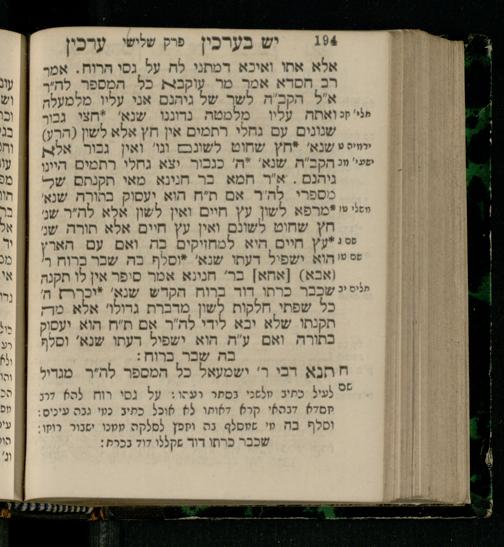 194 יש בערכין פרק שלישי ערכין
אלא אתו ואיכא דמתני לה על גסי הרוח. אמר
רב חסדא אמר מר עוקבא כל המספר לה״ר
א״ל הקב״ה לשר של גיהנם אני עליו מלמעלה
תלי׳ קכ ואתה עליו מלמטה נדוננו שנא׳ *חצי גבור
שנונים עם גחלי רתמים אין חץ אלא לשון (הרע)
ירמיה ט שנא׳ *חץ שחוט לשונם וגו׳ ואין גבור אלא
ישעי׳ מב הקב״ה שנא׳ *ה׳ כגבור יצא גחלי רתמים היינו
גיהנם. א״ר חמא בר חנינא מאי תקנתם של
מספרי לה״ר אם ת״ח הוא יעסוק בתורה שנא׳
משלי טו *מרפא לשון עץ חיים ואין לשון אלא לה״ר שנ׳
חץ שחוט לשונם ואין עץ חיים אלא תורה שנ׳
שם ג *עץ חיים היא למחזיקים בה ואם עם הארץ
שם טו הוא ישפיל דעתו שנא׳ *וסלף בה שבר ברוח ר׳
(אבא) [אחא] בר׳ חנינא אמר סיפר אין לו תקנה
תלים יב שכבר כרתו דוד ברוח הקדש שנא׳ *יכרת ה׳
כל שפתי חלקות לשון מדברת גדולו׳ אלא מה
תקנתו שלא יבא לידי לה״ר אם ת״ח הוא יעסוק
בתורה ואם ע״ה הוא ישפיל דעתו שנא׳ וסלף
בה שבר ברוח:
ח תנא דבי ר׳ ישמעאל כל המספר לה״ר מגדיל
שם לעיל כתיב מלשני בסתר רעהו: על גסי רוח להא דרב
חסדא דבהאי קרא דאותו לא אוכל כתיב נמי גבה עינים:
וסלף בה מי שמסלף בה
שכבר כרתו דוד שקללו דוד בכרת: